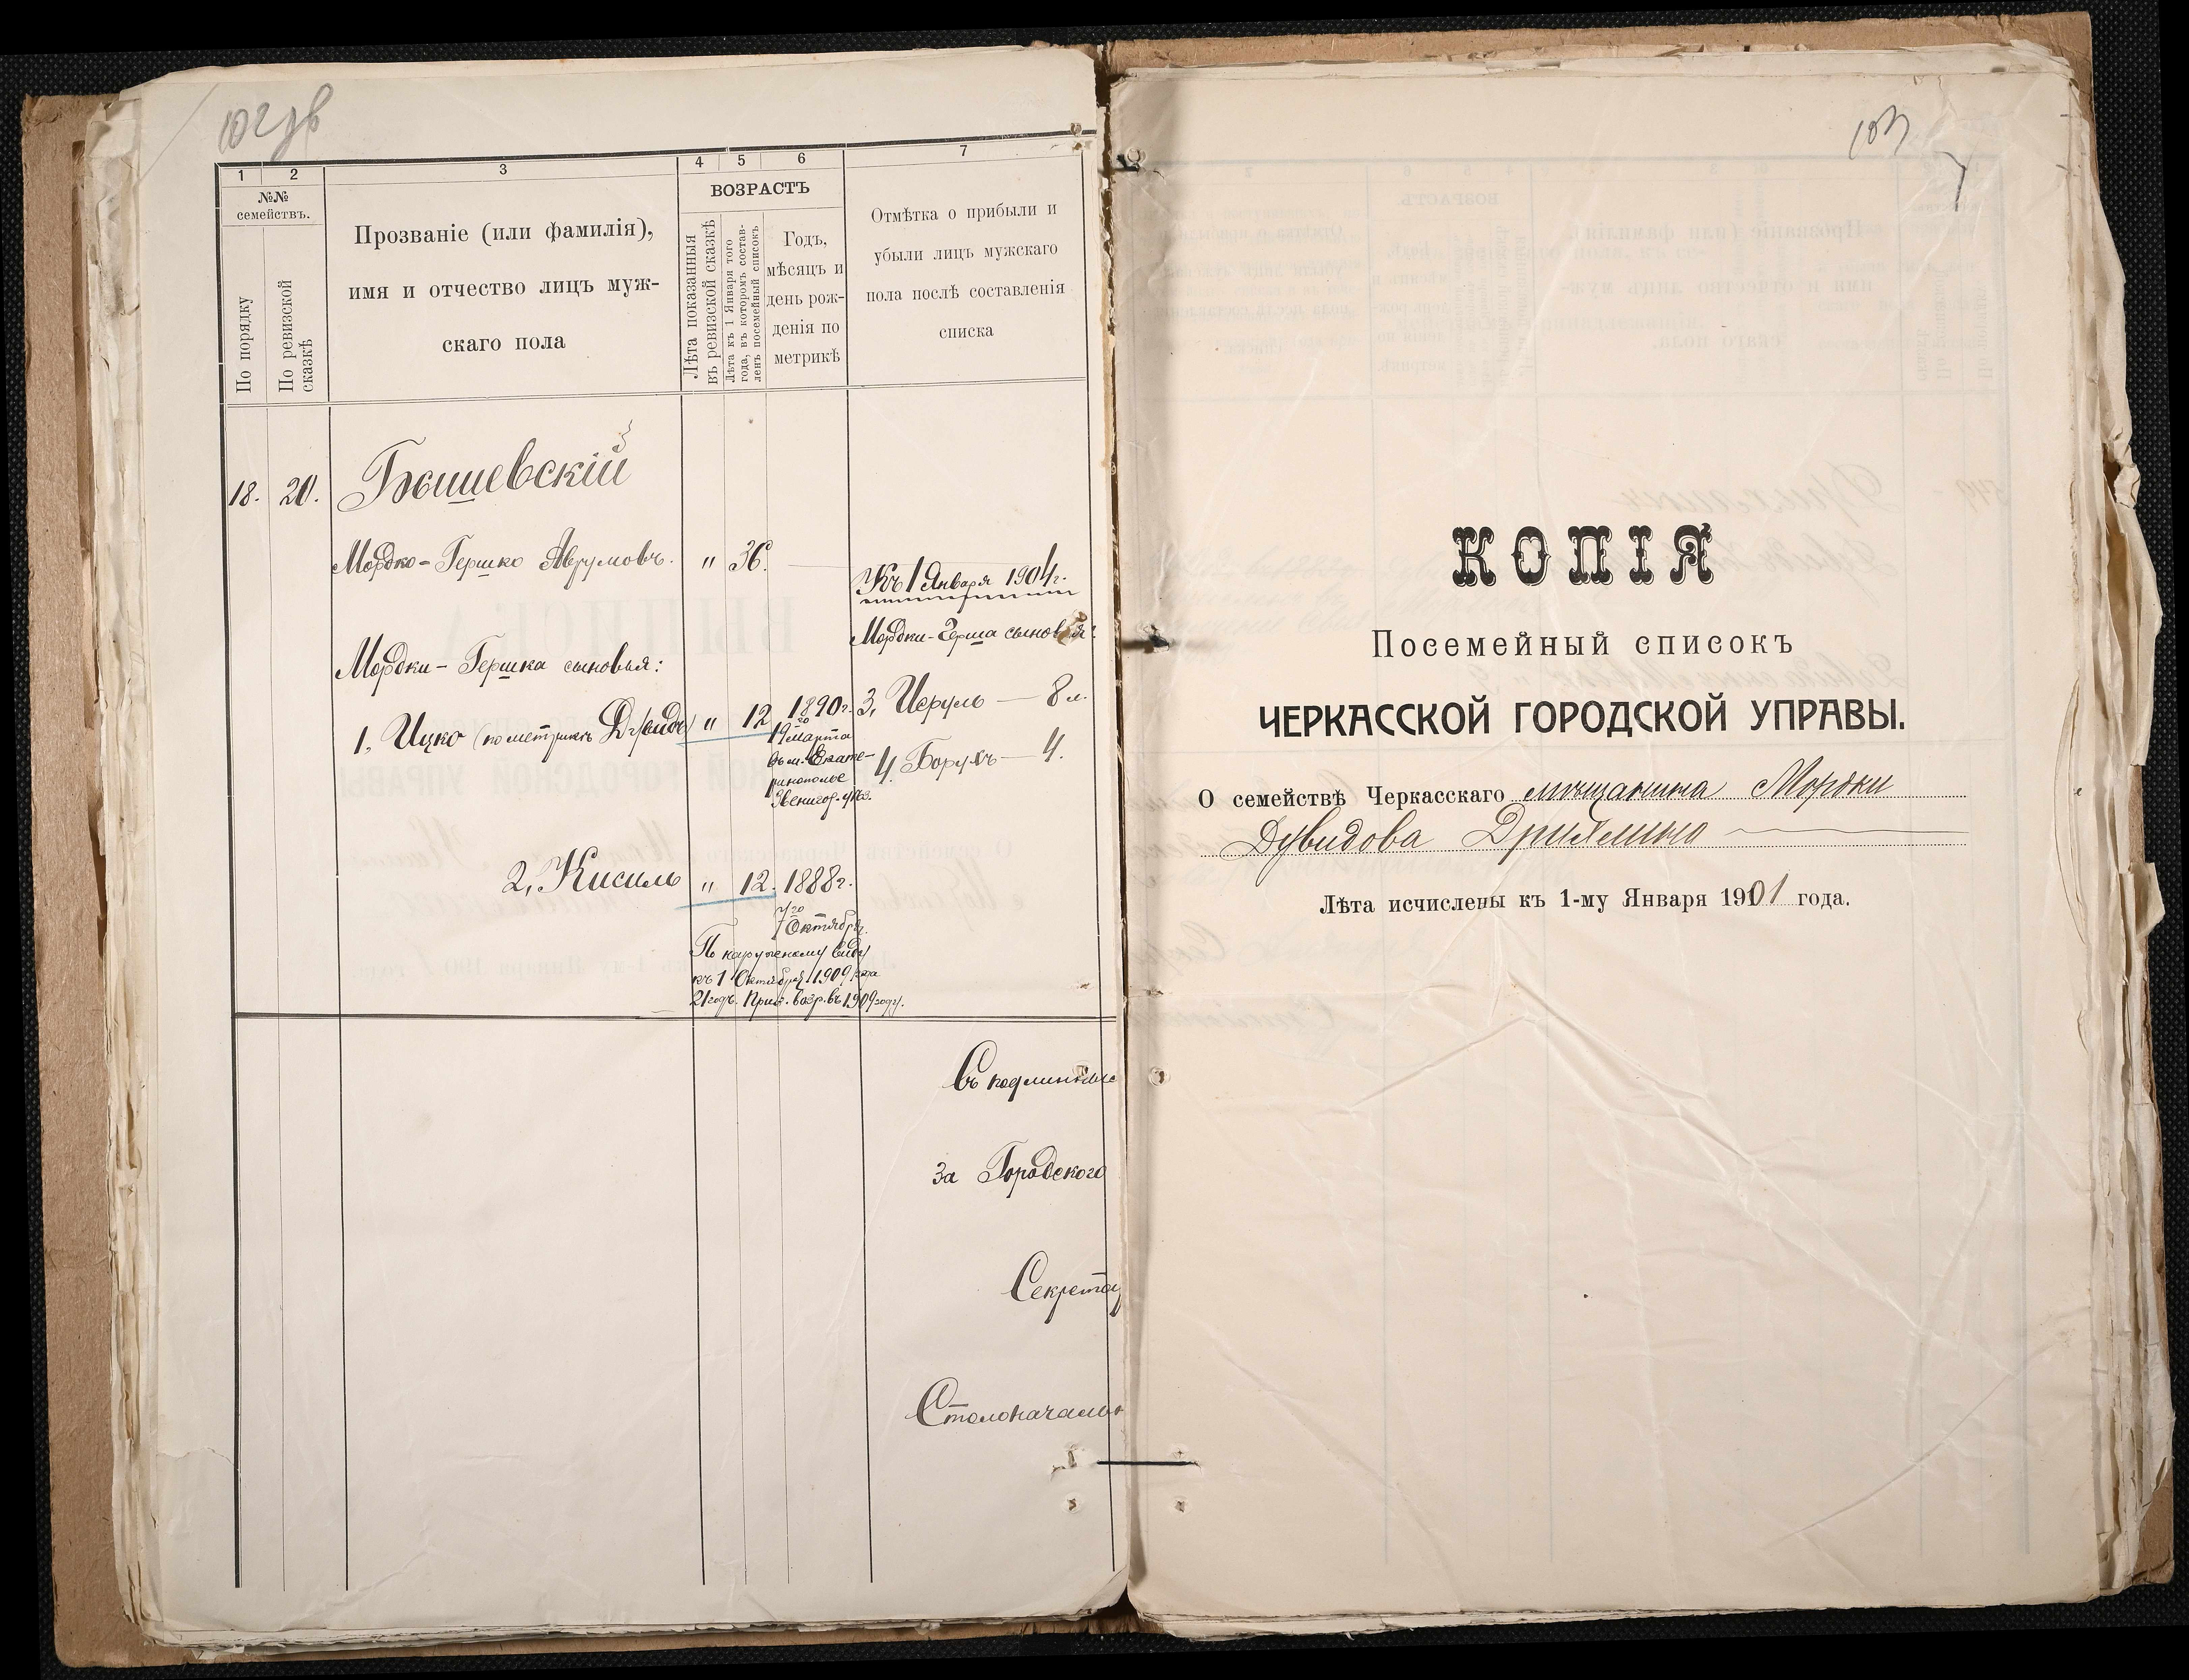 102 об
1
2
3
4
5
6
7
№№
семействъ.
По порядку
По ревизской
сказкѣ
Прозваніе (или фамилія),
имя и отчество лицъ муж-
скаго пола
ВОЗРАСТЪ
Лѣта показанныя
въ ревизской сказкѣ
Лѣта къ 1 Января того
года, въ которомъ состав-
ленъ посемейный списокъ
Годъ,
мѣсяцъ и
день рож-
денія по
метрикѣ
Отмѣтка о прибыли и
убыли лицъ мужскаго
пола послѣ составленія
списка
18. 20. Бышевскій
Мордко-Гершко Аврумовъ. " 36.
Къ 1 Января 1904 г.
Мордки-Герша сыновья:
Мордки-Гершка сыновья:
1, Ицко (по метрикѣ Дувидъ) " 12 1890 г.
19 марта
въ м. Екате-
ринополье
Звенигор. уѣз.
3, Исруль — 8 л.
4. Борухъ — 4.
2, Кисиль " 12. 1888 г.
7 Октября.
По наружному виду
къ 1 Октября 1909 года
21 годъ. Приз. возр. въ 1909 году.
Съ подлин
За Городского
Секрета
Столоначаль
103
КОПІЯ
Посемейный списокъ
ЧЕРКАССКОЙ ГОРОДСКОЙ УПРАВЫ.
О семействѣ Черкасскаго мѣщанина Мордки
Дувидова
Лѣта исчислены къ 1-му Января 1901 года.